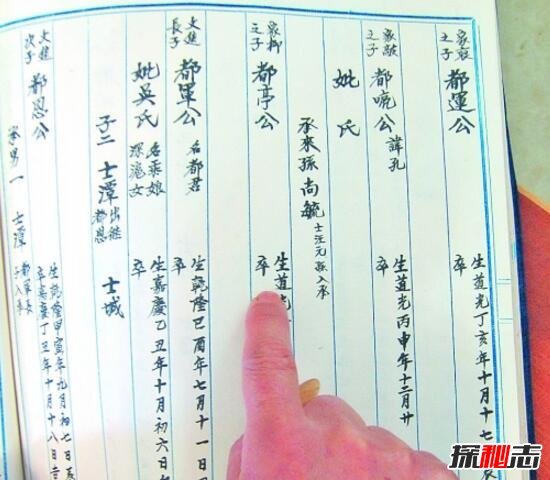 家毅之子 都運公 生道光丁亥年十月十七
卒
家毅之子 都嘵公 諱孔 生道光丙申年十二月廿
卒
妣氏
承來孫尚毓 士汪元孫入承
家柳之子 都亭公 生道
卒
文進長子 都軍公 名都君 生乾隆己酉年七月十一日
卒
妣吳氏 名乘娘 深滝女 生嘉慶乙丑年十月初六日
卒
子二 士潭 出繼都恩 士城
文進次子 都恩公 生乾隆甲寅年九月初七日
卒嘉慶丁丑年十月十八日
承男一 士潭 都軍長子入承
探秘志